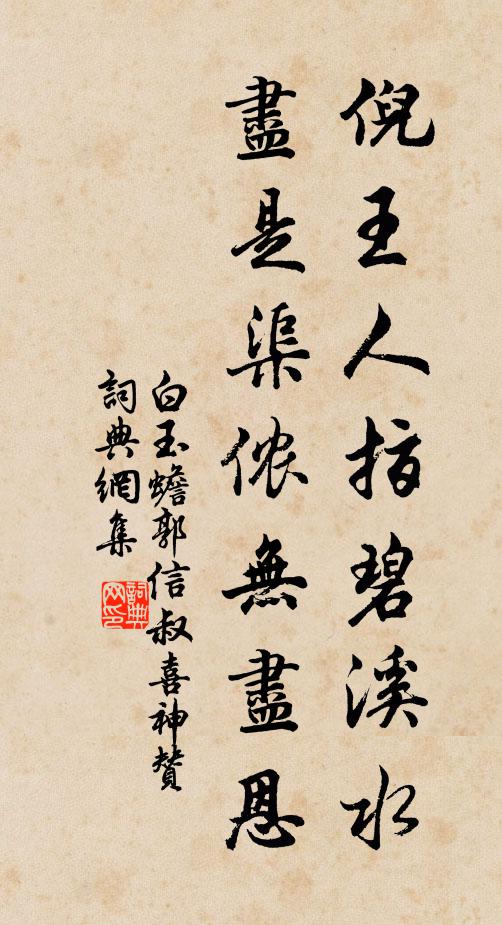 倪王人指碧溪水
盡是渠儂無盡恩
白玉蟾郭信叔喜神贊
詞典網集
詞典网印